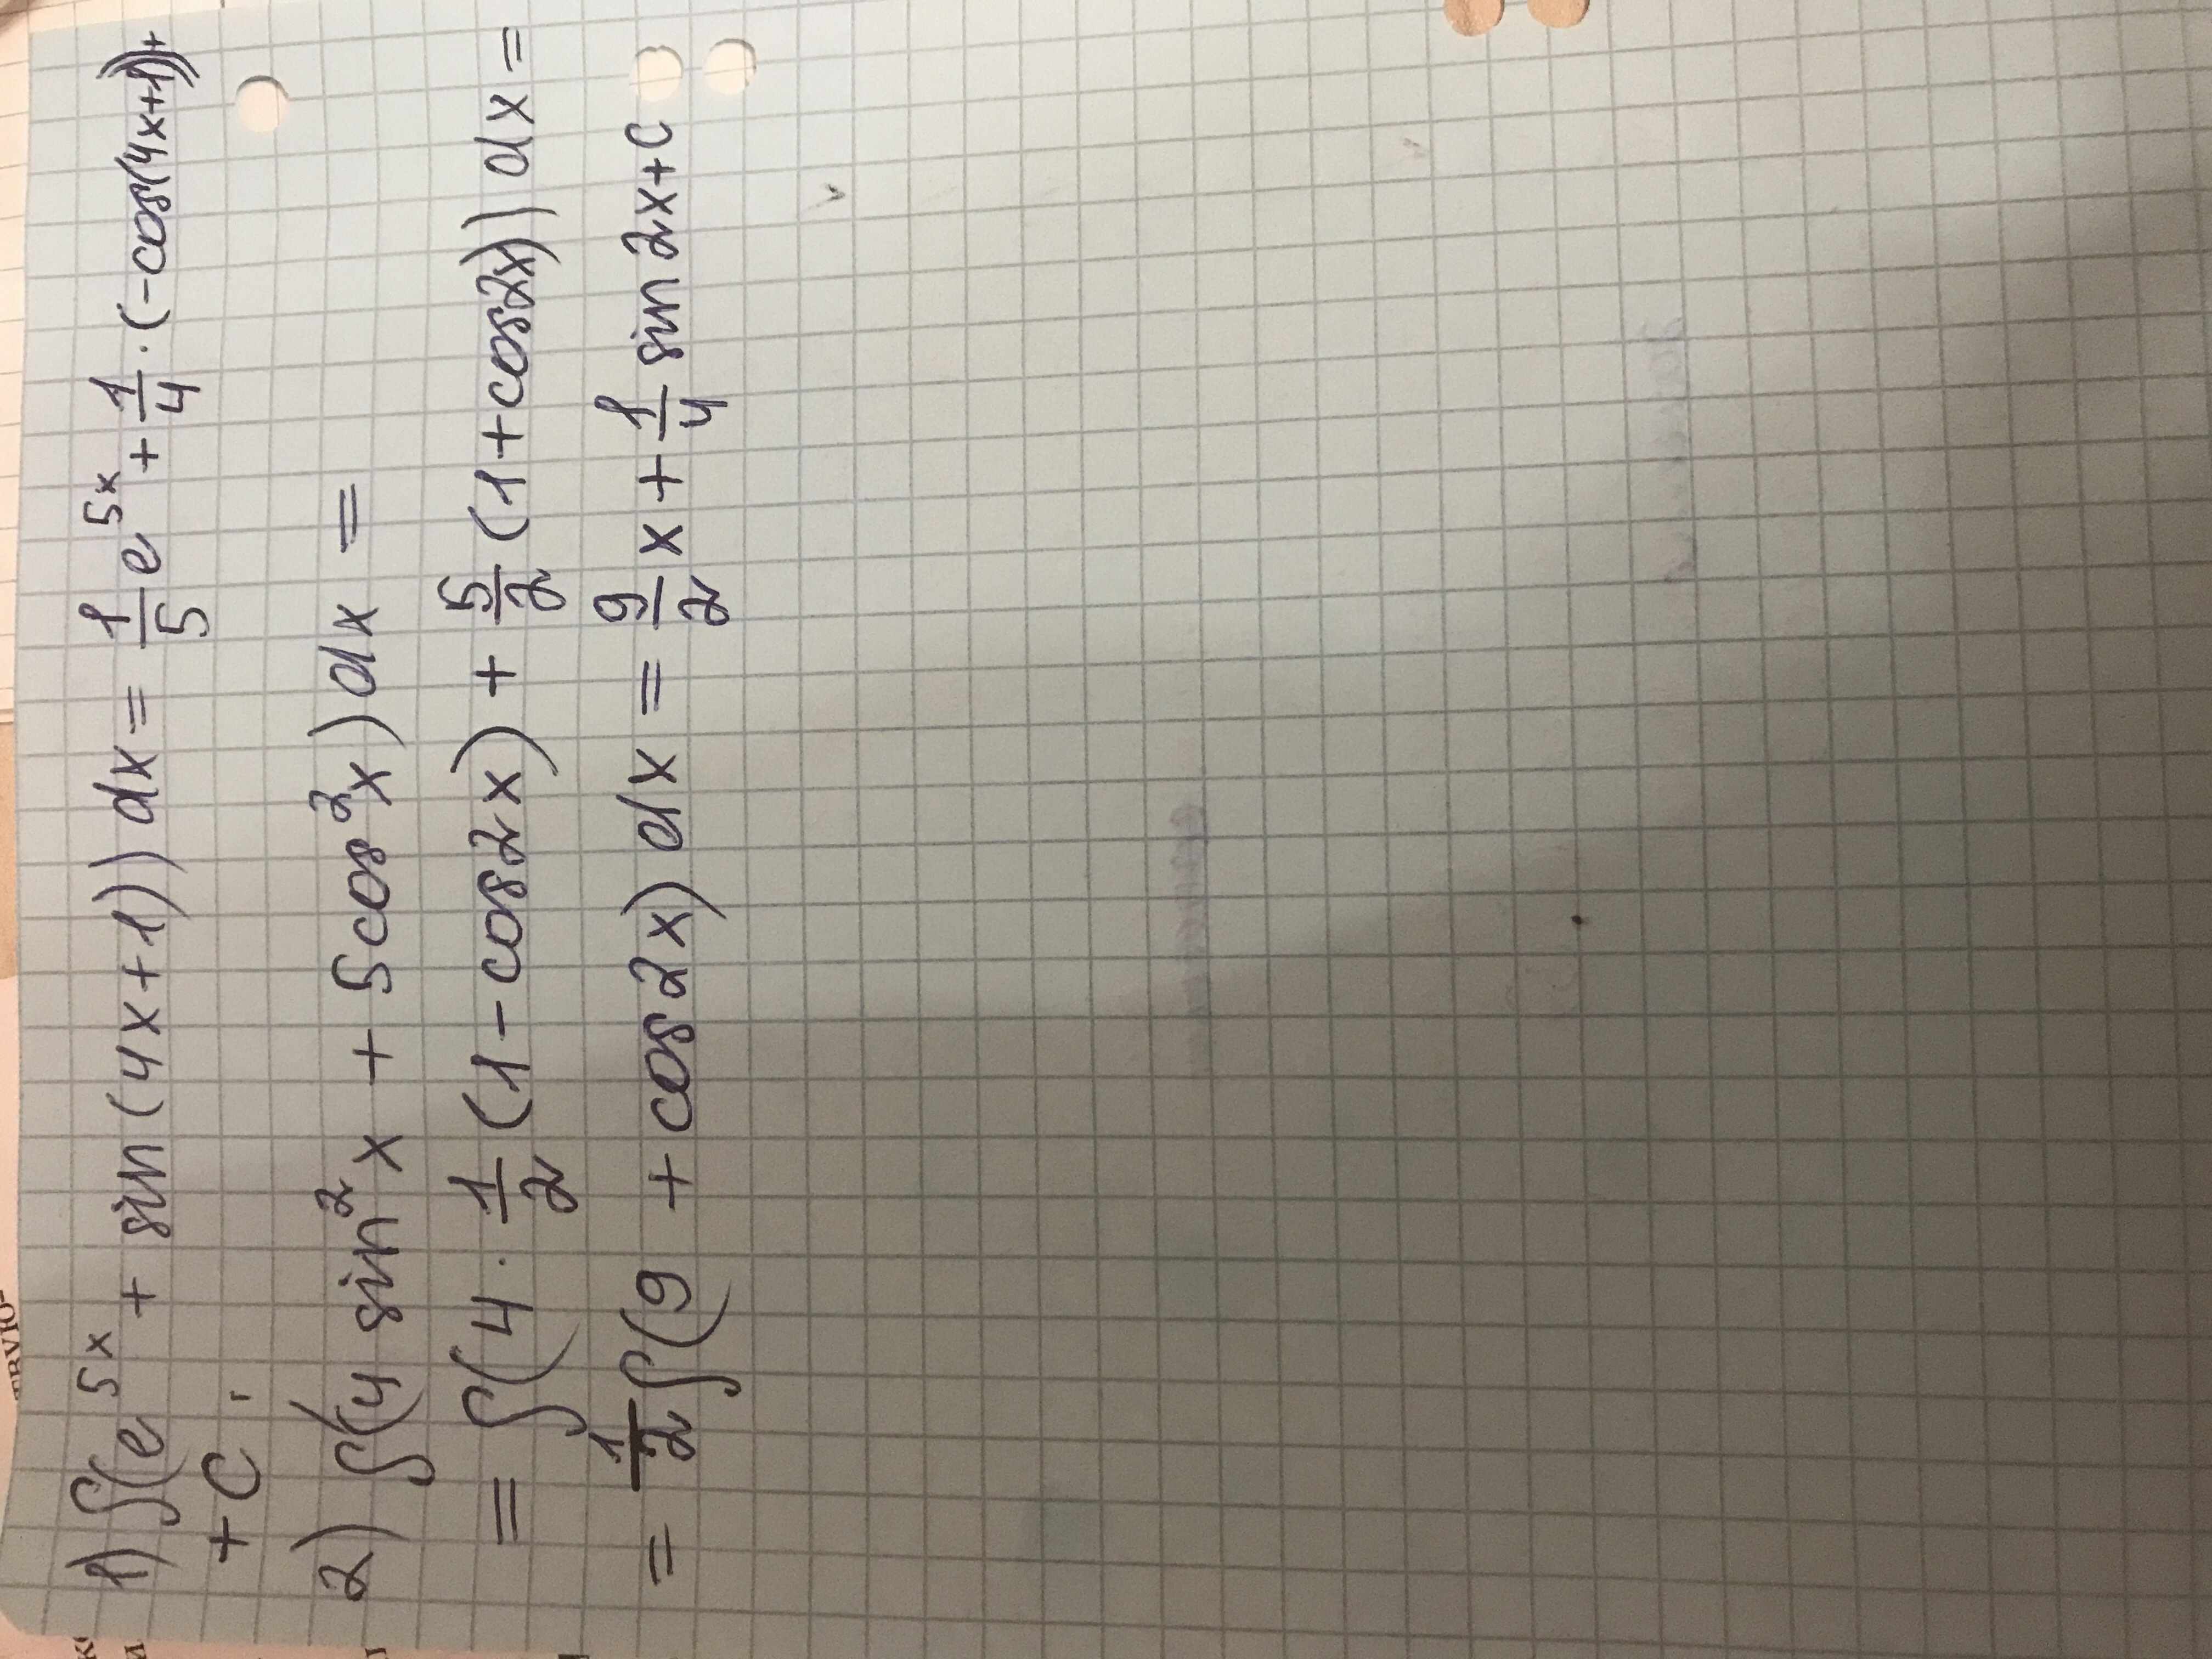 1) ∫(e^{5x} + sin(4x+1))dx = \frac{1}{5}e^{5x} + \frac{1}{4}·(-cos(4x+1))+
+C
2) ∫(4 sin²x + 5cos²x)dx =
= ∫(4·\frac{1}{2}(1-cos2x) + \frac{5}{2}(1+cos2x))dx =
= \frac{1}{2}∫(9 + cos2x)dx = \frac{9}{2}x + \frac{1}{4}sin2x+C